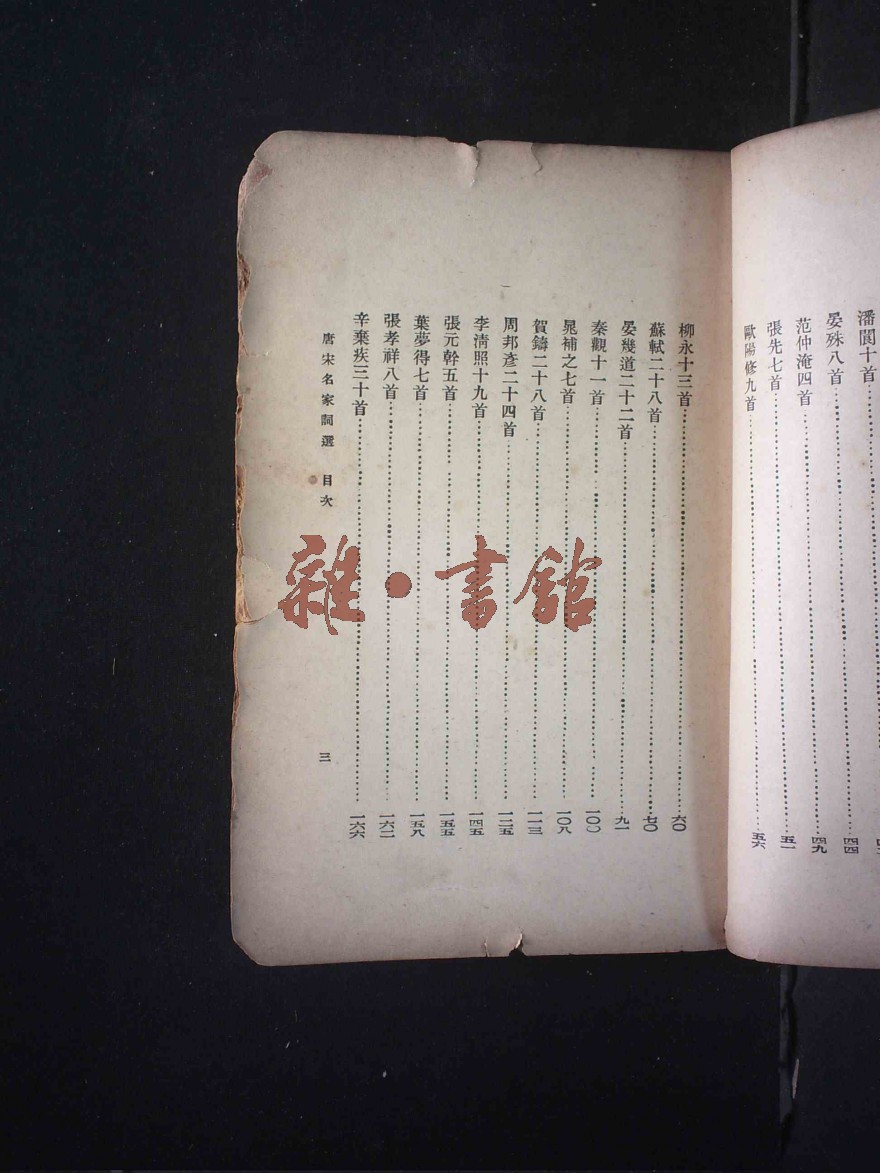 潘閬十首
晏殊八首 四四
范仲淹四首 四九
張先七首 五一
歐陽修九首 五六
柳永十三首 六〇
蘇軾二十八首 七〇
晏幾道二十二首 九一
秦觀十一首 一〇〇
晁補之七首 一〇八
賀鑄二十八首 一一三
周邦彥二十四首 一二五
李清照十九首 一四五
張元幹五首 一五五
葉夢得七首 一五八
張孝祥八首 一六二
辛棄疾三十首 一六六
唐宋名家詞選 目次 三
雜·書館